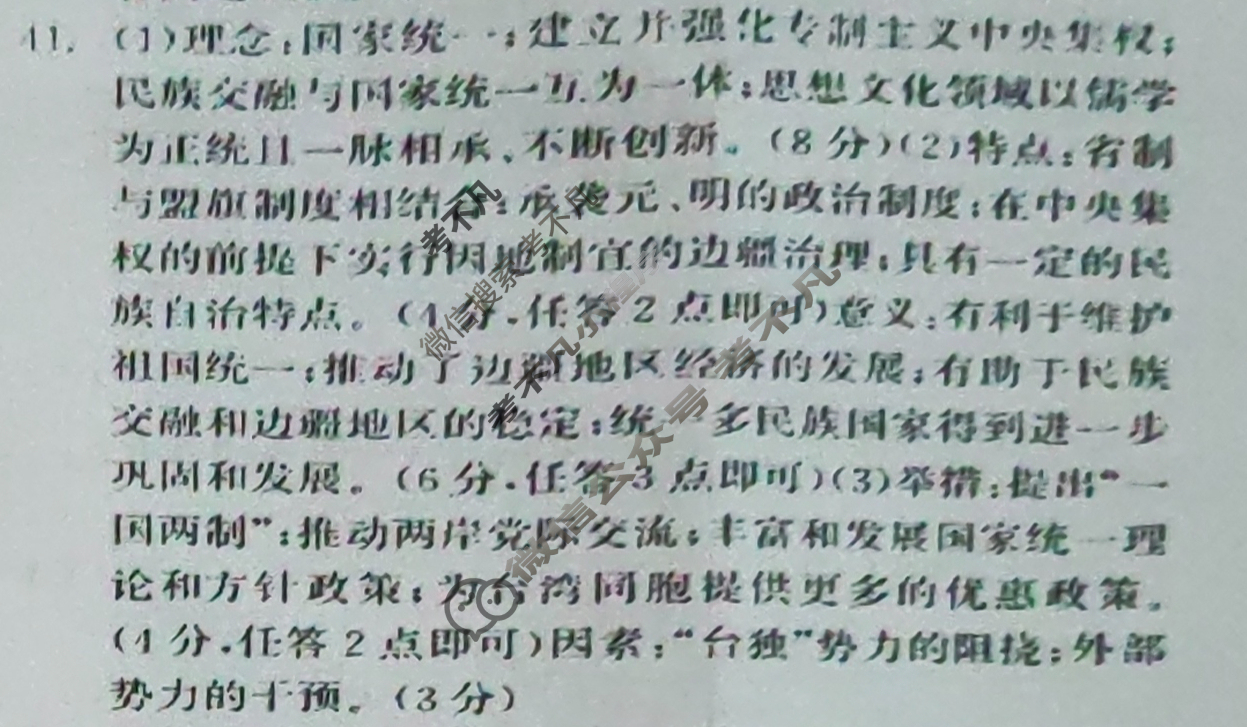 11. (1)理念:国家统一;建立并强化专制主义中央集权;
民族交融与国家统一互为一体;思想文化领域以儒学
为正统且一脉相承、不断创新。(8分)(2)特点:省制
与盟旗制度相结合;承袭元、明的政治制度;在中央集
权的前提下实行因地制宜的边疆治理;具有一定的民
族自治特点。(4分,任答2点即可)意义:有利于维护
祖国统一;推动了边疆地区经济的发展;有助于民族
交融和边疆地区的稳定;统一多民族国家得到进一步
巩固和发展。(6分,任答3点即可)(3)举措:提出“一
国两制”;推动两岸党际交流;丰富和发展国家统一理
论和方针政策;为台湾同胞提供更多的优惠政策。
(4分,任答2点即可)因素:“台独”势力的阻挠;外部
势力的干预。(3分)
微信搜索考不凡
考不凡
微信公众号 考不凡